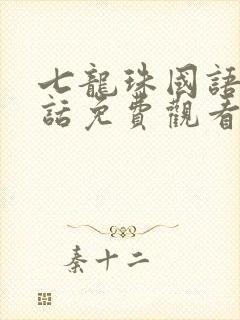 七龍珠國語
話免費觀看
秦十二